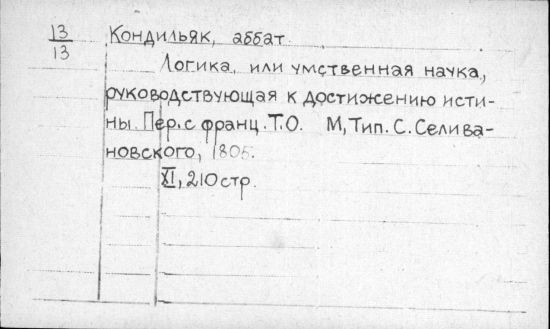 13
13
Кондильяк, аббат
Логика, или умственная наука,
руководствующая к достижению исти-
ны. Пер. с франц. Т.О. М, Тип. С. Селива-
новского, 1805.
XI, 210 стр.